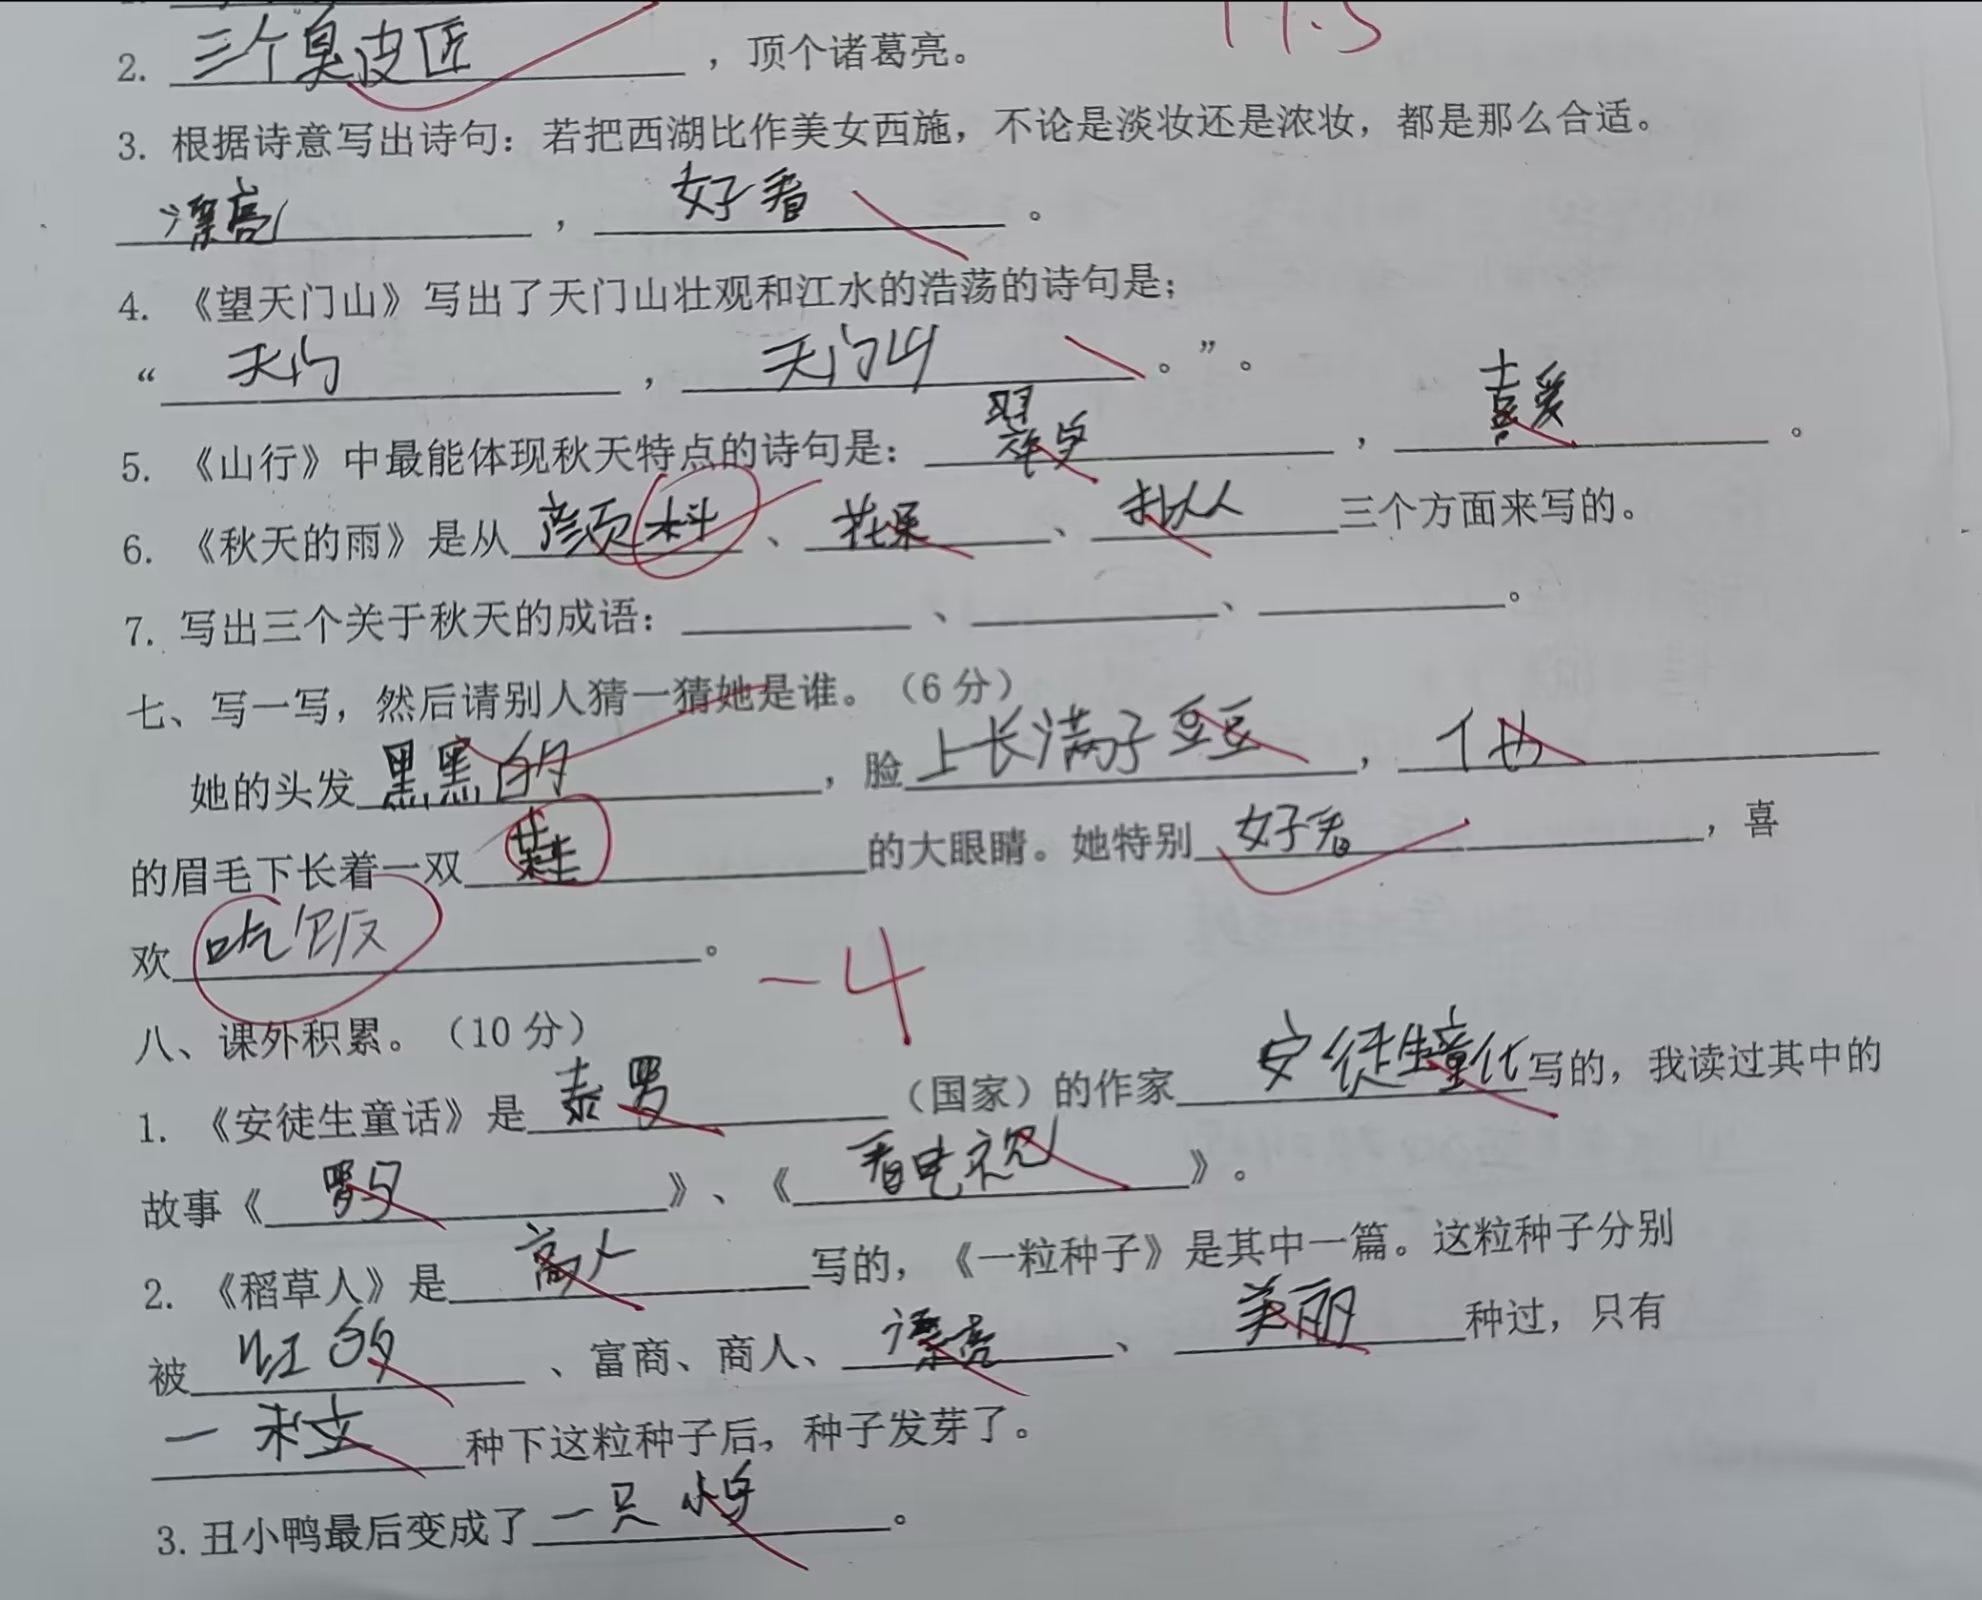 2. 三个臭皮匠，顶个诸葛亮。
3. 根据诗意写出诗句：若把西湖比作美女西施，不论是淡妆还是浓妆，都是那么合适。
漂亮，好看。
4. 《望天门山》写出了天门山壮观和江水的浩荡的诗句是；
“天门，天门山。”。
5. 《山行》中最能体现秋天特点的诗句是：，喜爱。
6. 《秋天的雨》是从颜料、花果、三个方面来写的。
7. 写出三个关于秋天的成语：、、。
七、写一写，然后请别人猜一猜她是谁。（6 分）
她的头发黑黑的，脸上长满子豆豆，他
的眉毛下长着一双的大眼睛。她特别好看，喜
欢吃饭。
-4
八、课外积累。（10 分）
1. 《安徒生童话》是泰罗（国家）的作家安徒生童化写的，我读过其中的
故事《》、《看电视》。
2. 《稻草人》是高人写的，《一粒种子》是其中一篇。这粒种子分别
被红的、富商、商人、漂亮、美丽种过，只有
一粒种下这粒种子后，种子发芽了。
3. 丑小鸭最后变成了一只小鸟。